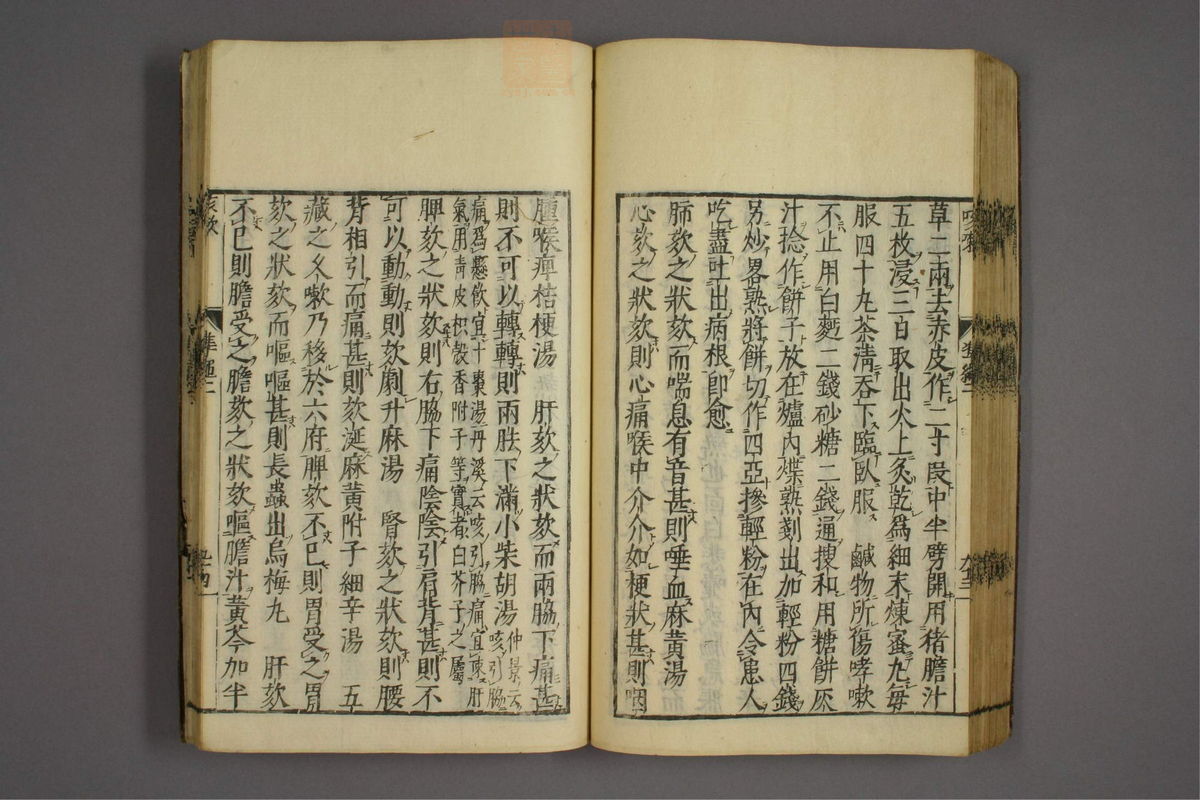 草三兩去赤皮作二寸段中半劈開用猪膽汁
五枚浸三日取出火上炙乾爲細末煉蜜丸每
服四十九茶清吞下臨臥服　鹹物所傷哮嗽
不止用白麪二錢砂糖二錢通摟和用糖餅灰
汁捻作餅子放在爐內煠熟剗出加輕粉四錢
另炒畧熟將餅切作四亞摻輕粉在內令患人
吃盡吐出病根卽愈
肺欬之狀欬而喘息有音甚則唾血麻黃湯
心欬之狀欬則心痛喉中介介如梗狀甚則咽
腫喉痺桔梗湯　肝欬之狀欬而兩脇下痛甚
則不可以轉轉則兩胠下滿小柴胡湯仲景云咳引脇
痛爲懸飲宜十棗湯丹溪云咳引脇痛宜疎肝
氣用靑皮枳殼香附子等實者白芥子之屬
脾欬之狀欬則右脇下痛陰陰引肩背甚則不
可以動動則欬劇升麻湯　腎欬之狀欬則腰
背相引而痛甚則欬涎麻黃附子細辛湯　五
藏之久嗽乃移於六府脾欬不已則胃受之胃
欬之狀欬而嘔嘔甚則長蟲出烏梅丸　肝欬
不已則膽受之膽欬之狀欬嘔膽汁黃芩加半